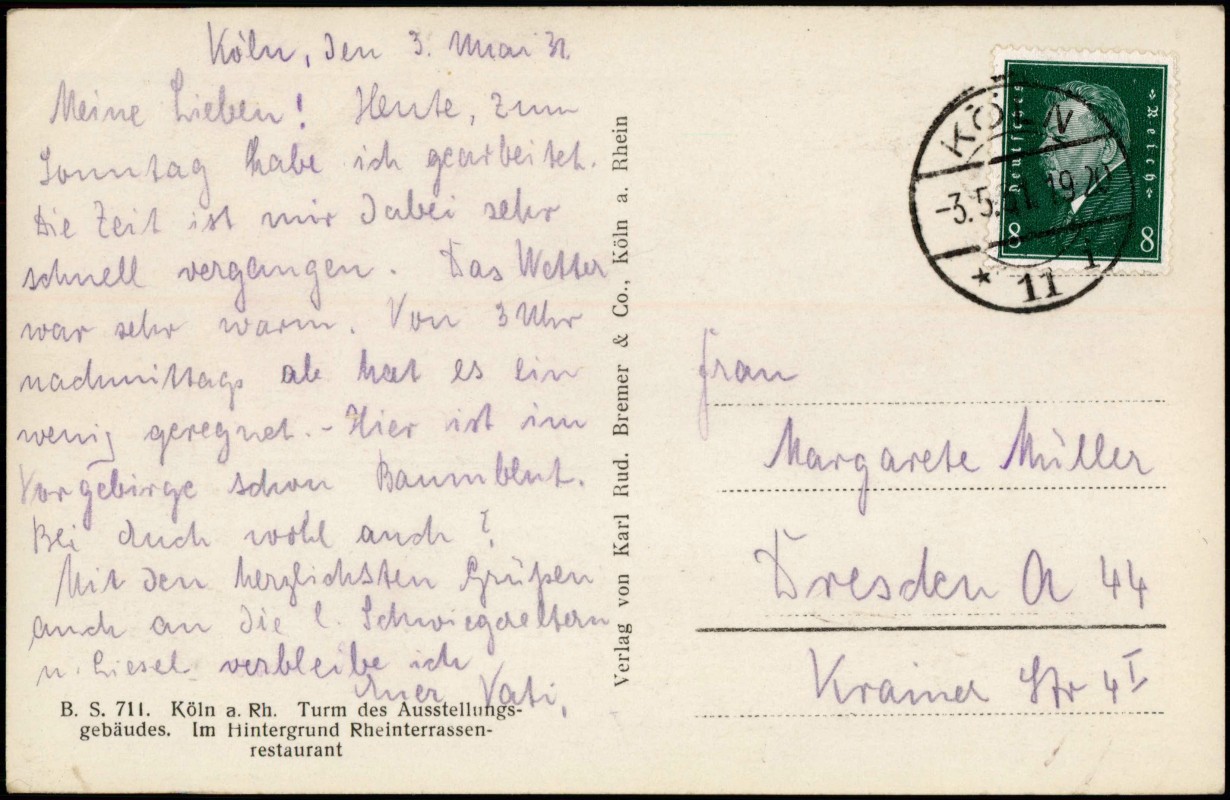 Köln, den 3. Mai 31.
Meine Lieben! Heute, zum
Sonntag habe ich gearbeitet.
Die Zeit ist mir dabei sehr
schnell vergangen. Das Wetter
war sehr warm. Von 3 Uhr
nachmittags ab hat es ein
wenig geregnet. - Hier ist im
Vorgebirge schon Baumblut.
Bei Euch wohl auch?
Mit den herzlichsten Grüßen
auch an die l. Schwiegereltern
u. Liesel verbleibe ich
Euer Vati.
B. S. 711. Köln a. Rh. Turm des Ausstellungs-
gebäudes. Im Hintergrund Rheinterrassen-
restaurant
Verlag von Karl Rud. Bremer & Co., Köln a. Rhein
KÖLN
-3.5.31.19 20
* 11 i
Deutsches
Reich
8 8
Frau
Margarete Müller
Dresden A 44
Krainer Str 4 I